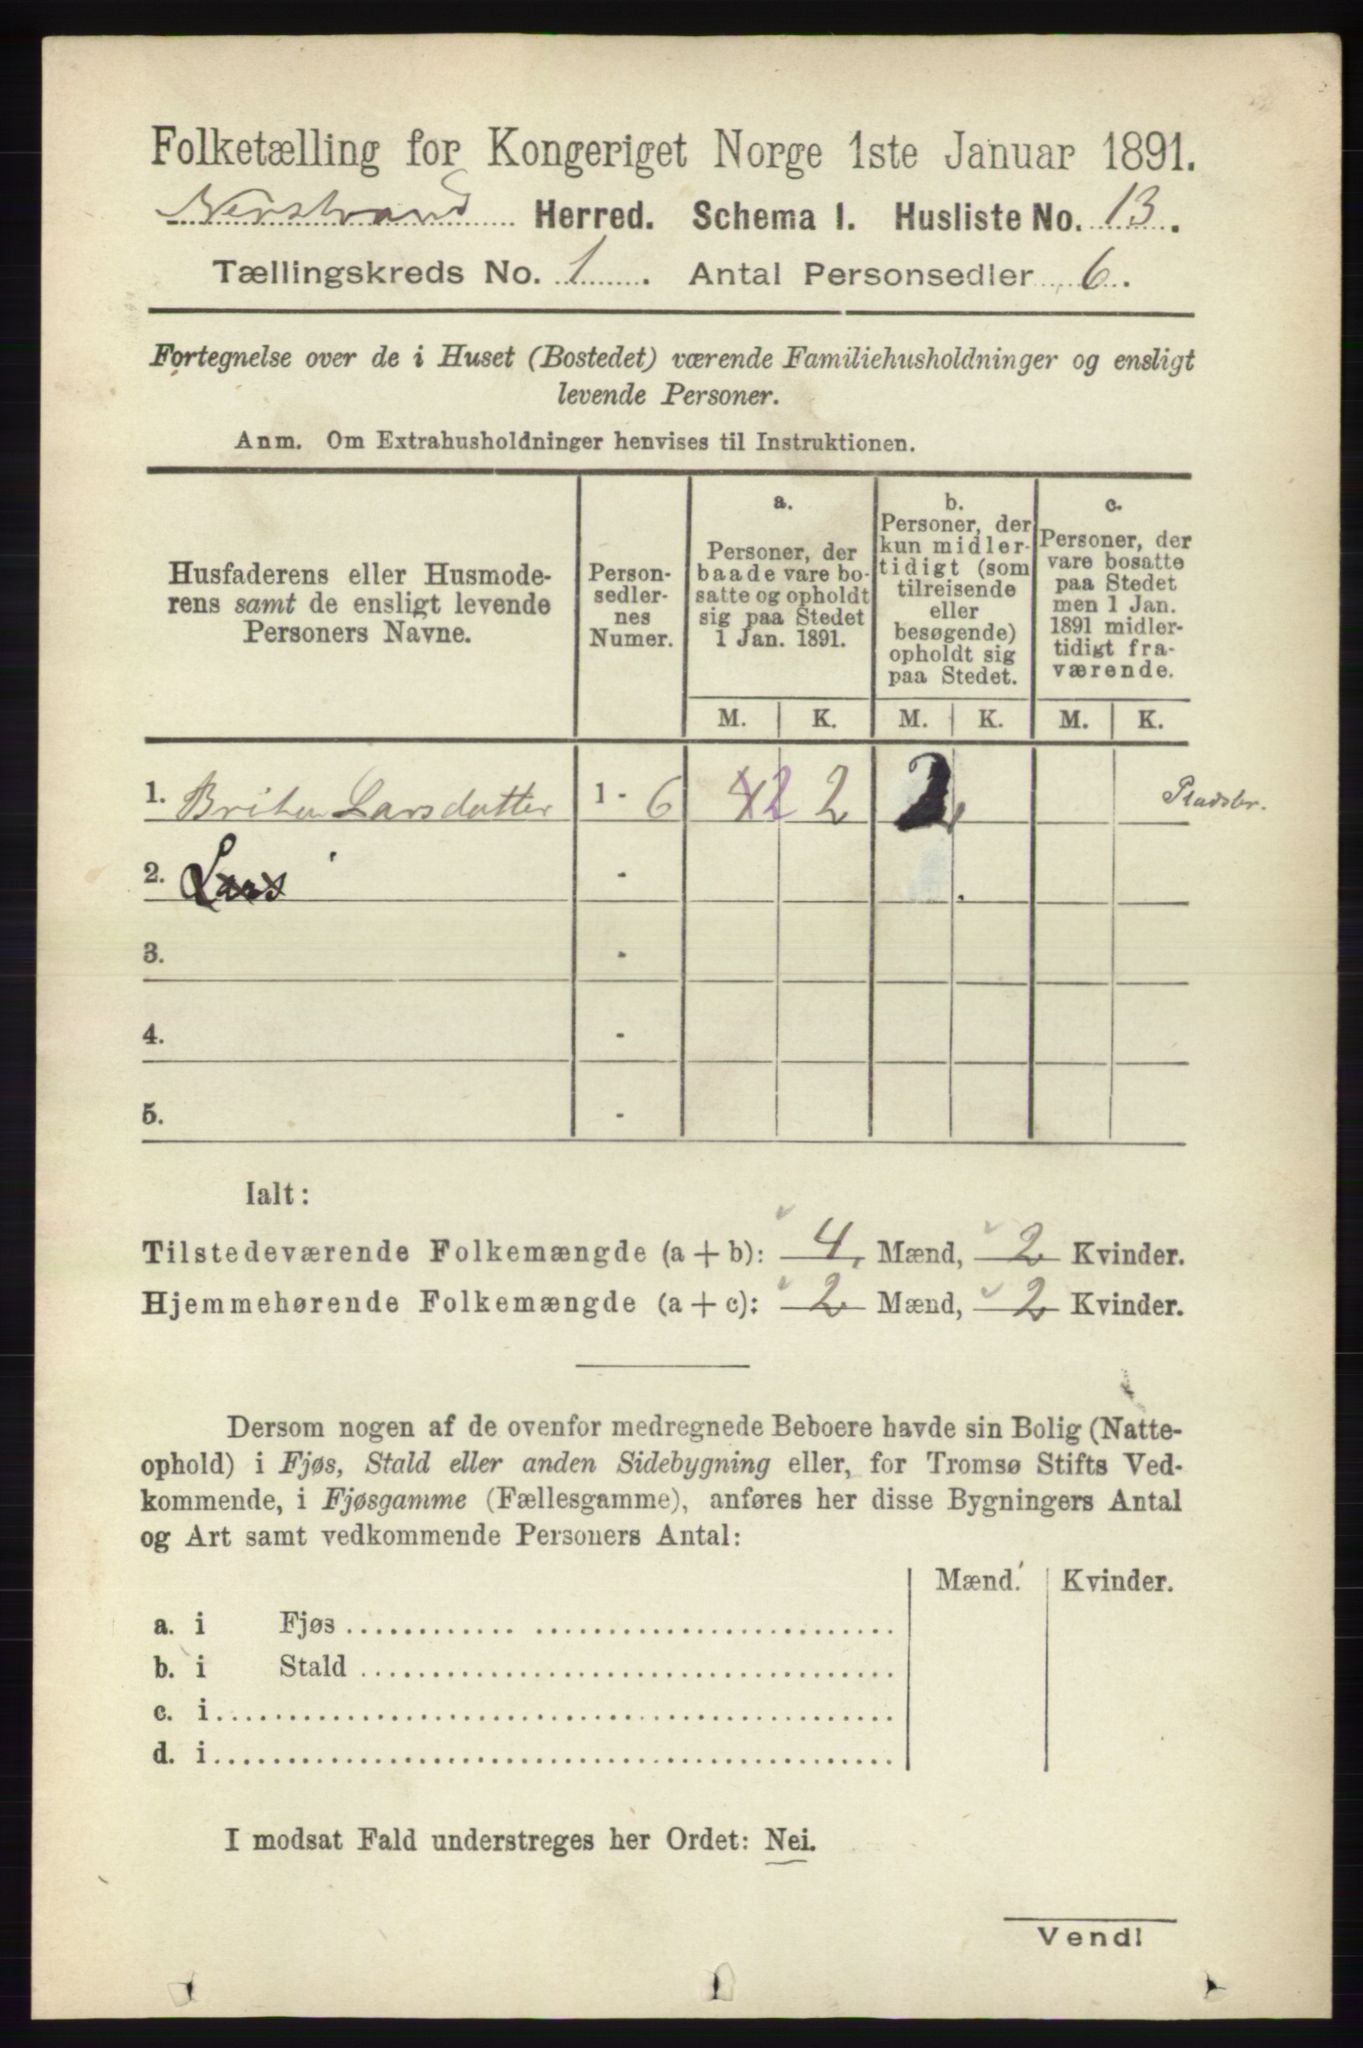 Folketælling for Kongeriget Norge 1ste Januar 1891.
Nerstrand Herred. Schema I. Husliste No. 13.
Tællingskreds No. 1. Antal Personsedler 6.
Fortegnelse over de i Huset (Bostedet) værende Familiehusholdninger og ensligt
levende Personer.
Anm. Om Extrahusholdninger henvises til Instruktionen.
Husfaderens eller Husmode-
rens samt de ensligt levende
Personers Navne.
Person-
sedler-
nes
Numer.
a.
Personer, der
baade vare bo-
satte og opholdt
sig paa Stedet
1 Jan. 1891.
b.
Personer, der
kun midler-
tidigt (som
tilreisende
eller
besøgende)
opholdt sig
paa Stedet.
c.
Personer, der
vare bosatte
paa Stedet
men 1 Jan.
1891 midler-
tidigt fra-
værende.
M. K. M. K. M. K.
1. Larsdatter 1 - 6 4 2 2 2
2. Lars -
3. -
4. -
5. -
Ialt:
Tilstedeværende Folkemængde (a + b): 4 Mænd, 2 Kvinder.
Hjemmehørende Folkemængde (a + c): 2 Mænd, 2 Kvinder.
Dersom nogen af de ovenfor medregnede Beboere havde sin Bolig (Natte-
ophold) i Fjøs, Stald eller anden Sidebygning eller, for Tromsø Stifts Ved-
kommende, i Fjøsgamme (Fællesgamme), anføres her disse Bygningers Antal
og Art samt vedkommende Personers Antal:
Mænd. Kvinder.
a. i Fjøs
b. i Stald
c. i
d. i
I modsat Fald understreges her Ordet: Nei.
Vend!